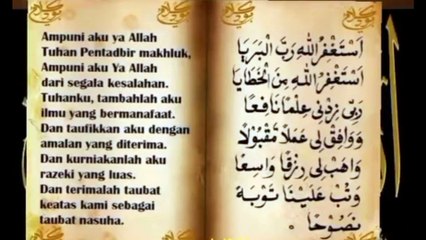 Ampuni aku ya Allah
Tuhan Pentadbir makhluk,
Ampuni aku Ya Allah
dari segala kesalahan.
Tuhanku, tambahlah aku
ilmu yang bermanafaat.
Dan taufikkan aku dengan
amalan yang diterima.
Dan kurniakanlah aku
razeki yang luas.
Dan terimalah taubat
keatas kami sebagai
taubat nasuha.
اَسْتَغْفِرُ اللهَ رَبَّ الْبَرَايَا
اَسْتَغْفِرُ اللهَ مِنَ الْخَطَايَا
رَبِّى زِدْنِى عِلْمًا نَافِعًا
وَوَافِقْ لِى عَمَلًا مَقْبُوْلًا
وَاهَبْ لِى رِزْقًا وَاسِعًا
وَتُبْ عَلَيْنَا تَوْبَةً
نَصُوْحًا